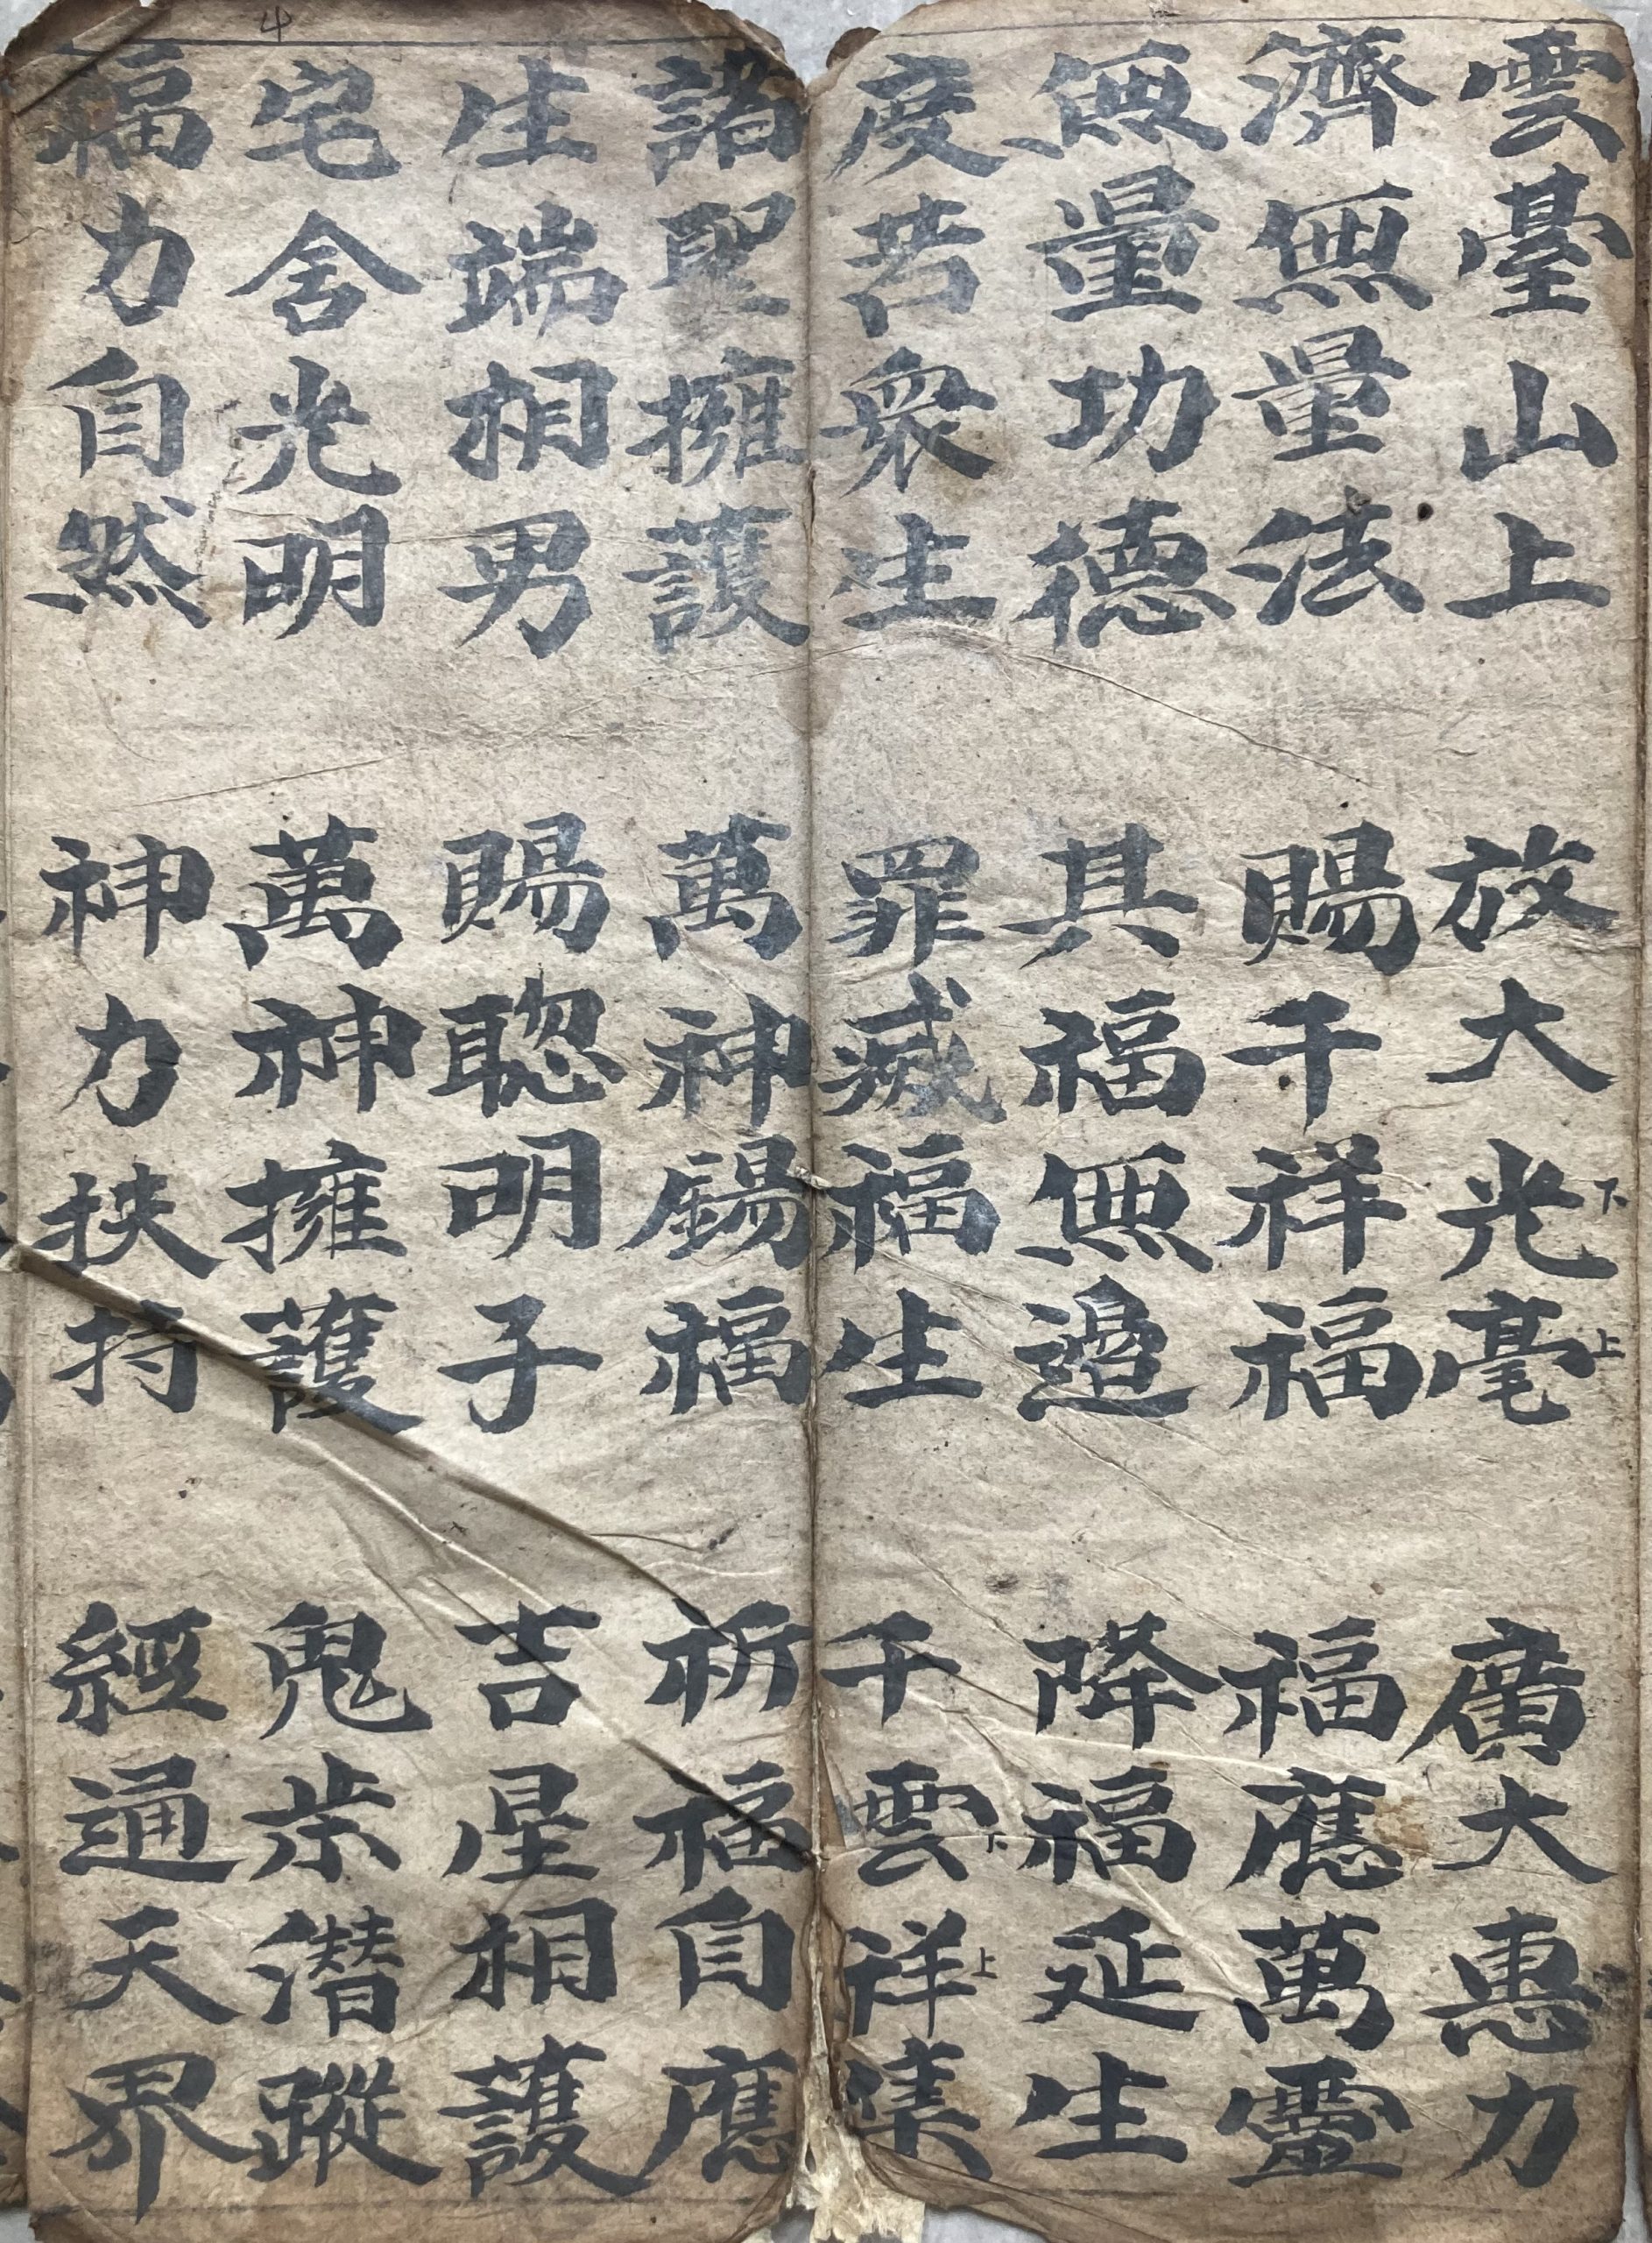 雲臺山上 放大光毫 廣大惠力
下
上
濟無量法 賜千祥福 福應萬靈
無量功德 具福無邊 降福延生
度苦衆生 罪滅福生 千雲祥集
下
上
諸聖擁護 萬神錫福 祈福自應
生端相男 賜聰明子 吉星相護
宅舍光明 萬神擁護 鬼步潛蹤
福力自然 神力挾持 經通天界
4